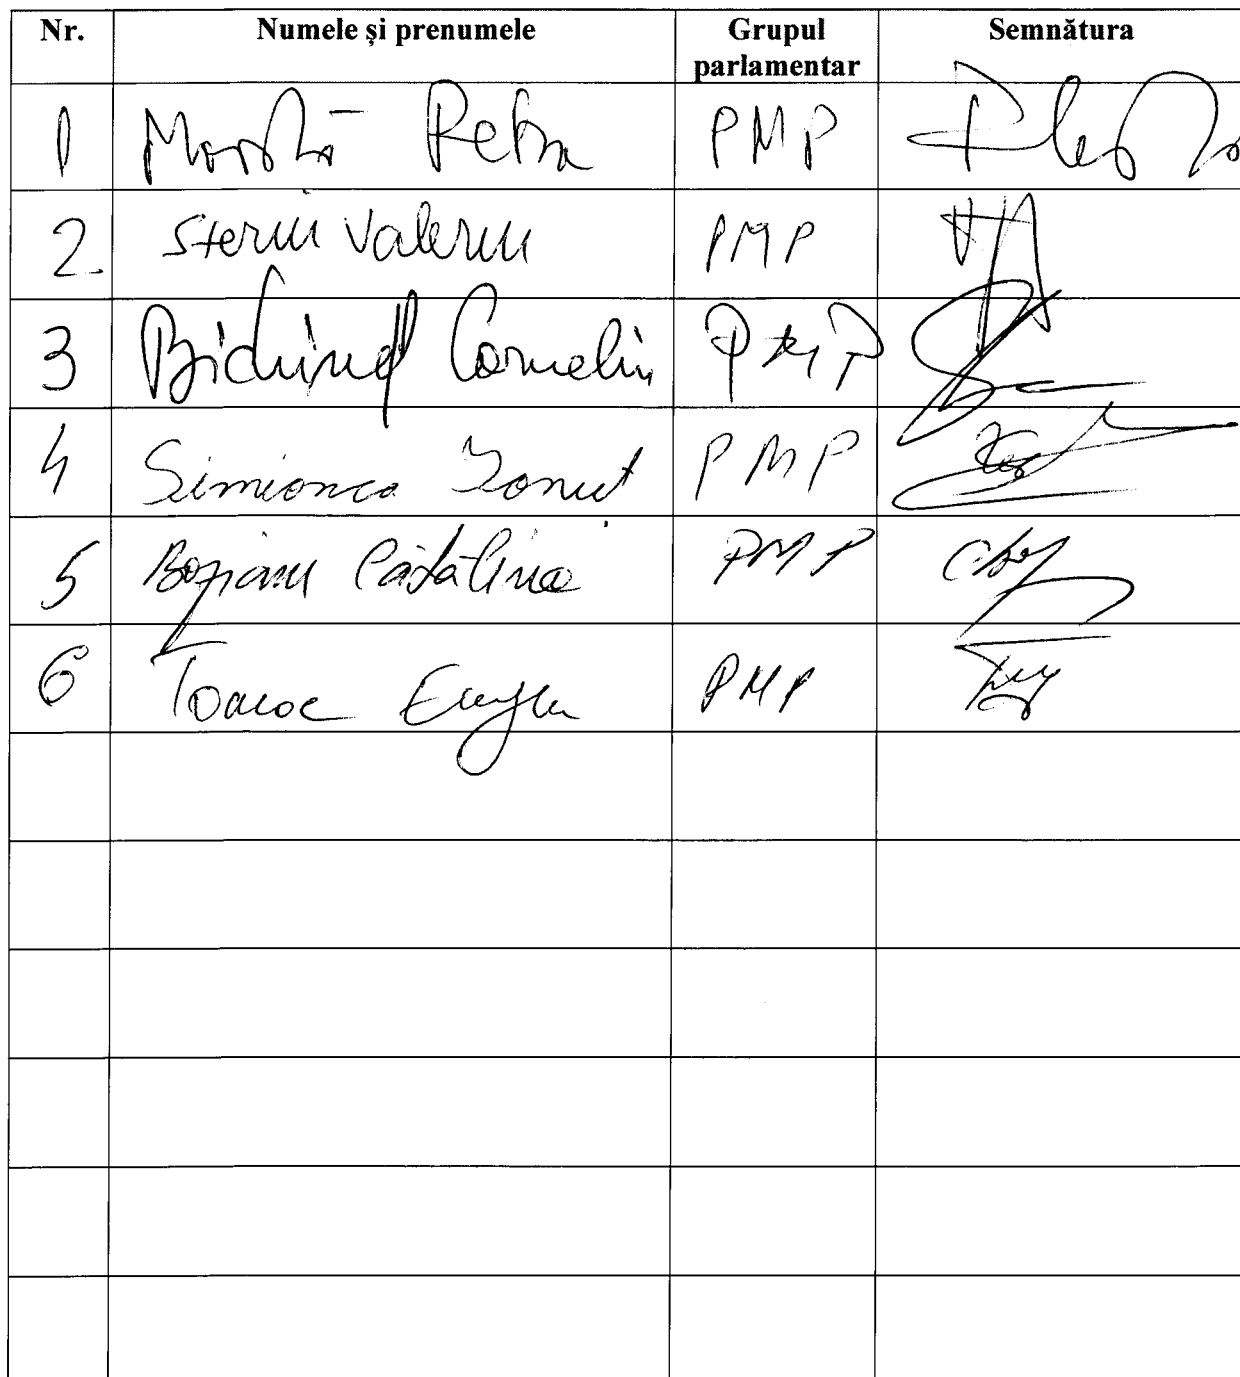 Nr. Numele și prenumele Grupul parlamentar Semnătura
1 Petru PMP
2. Steriu Valeriu PMP
3 Bichineț Corneliu PMP
4 Simionca Ionuț PMP
5 Bozianu Cătălina PMP
6 Tomac Eugen PMP